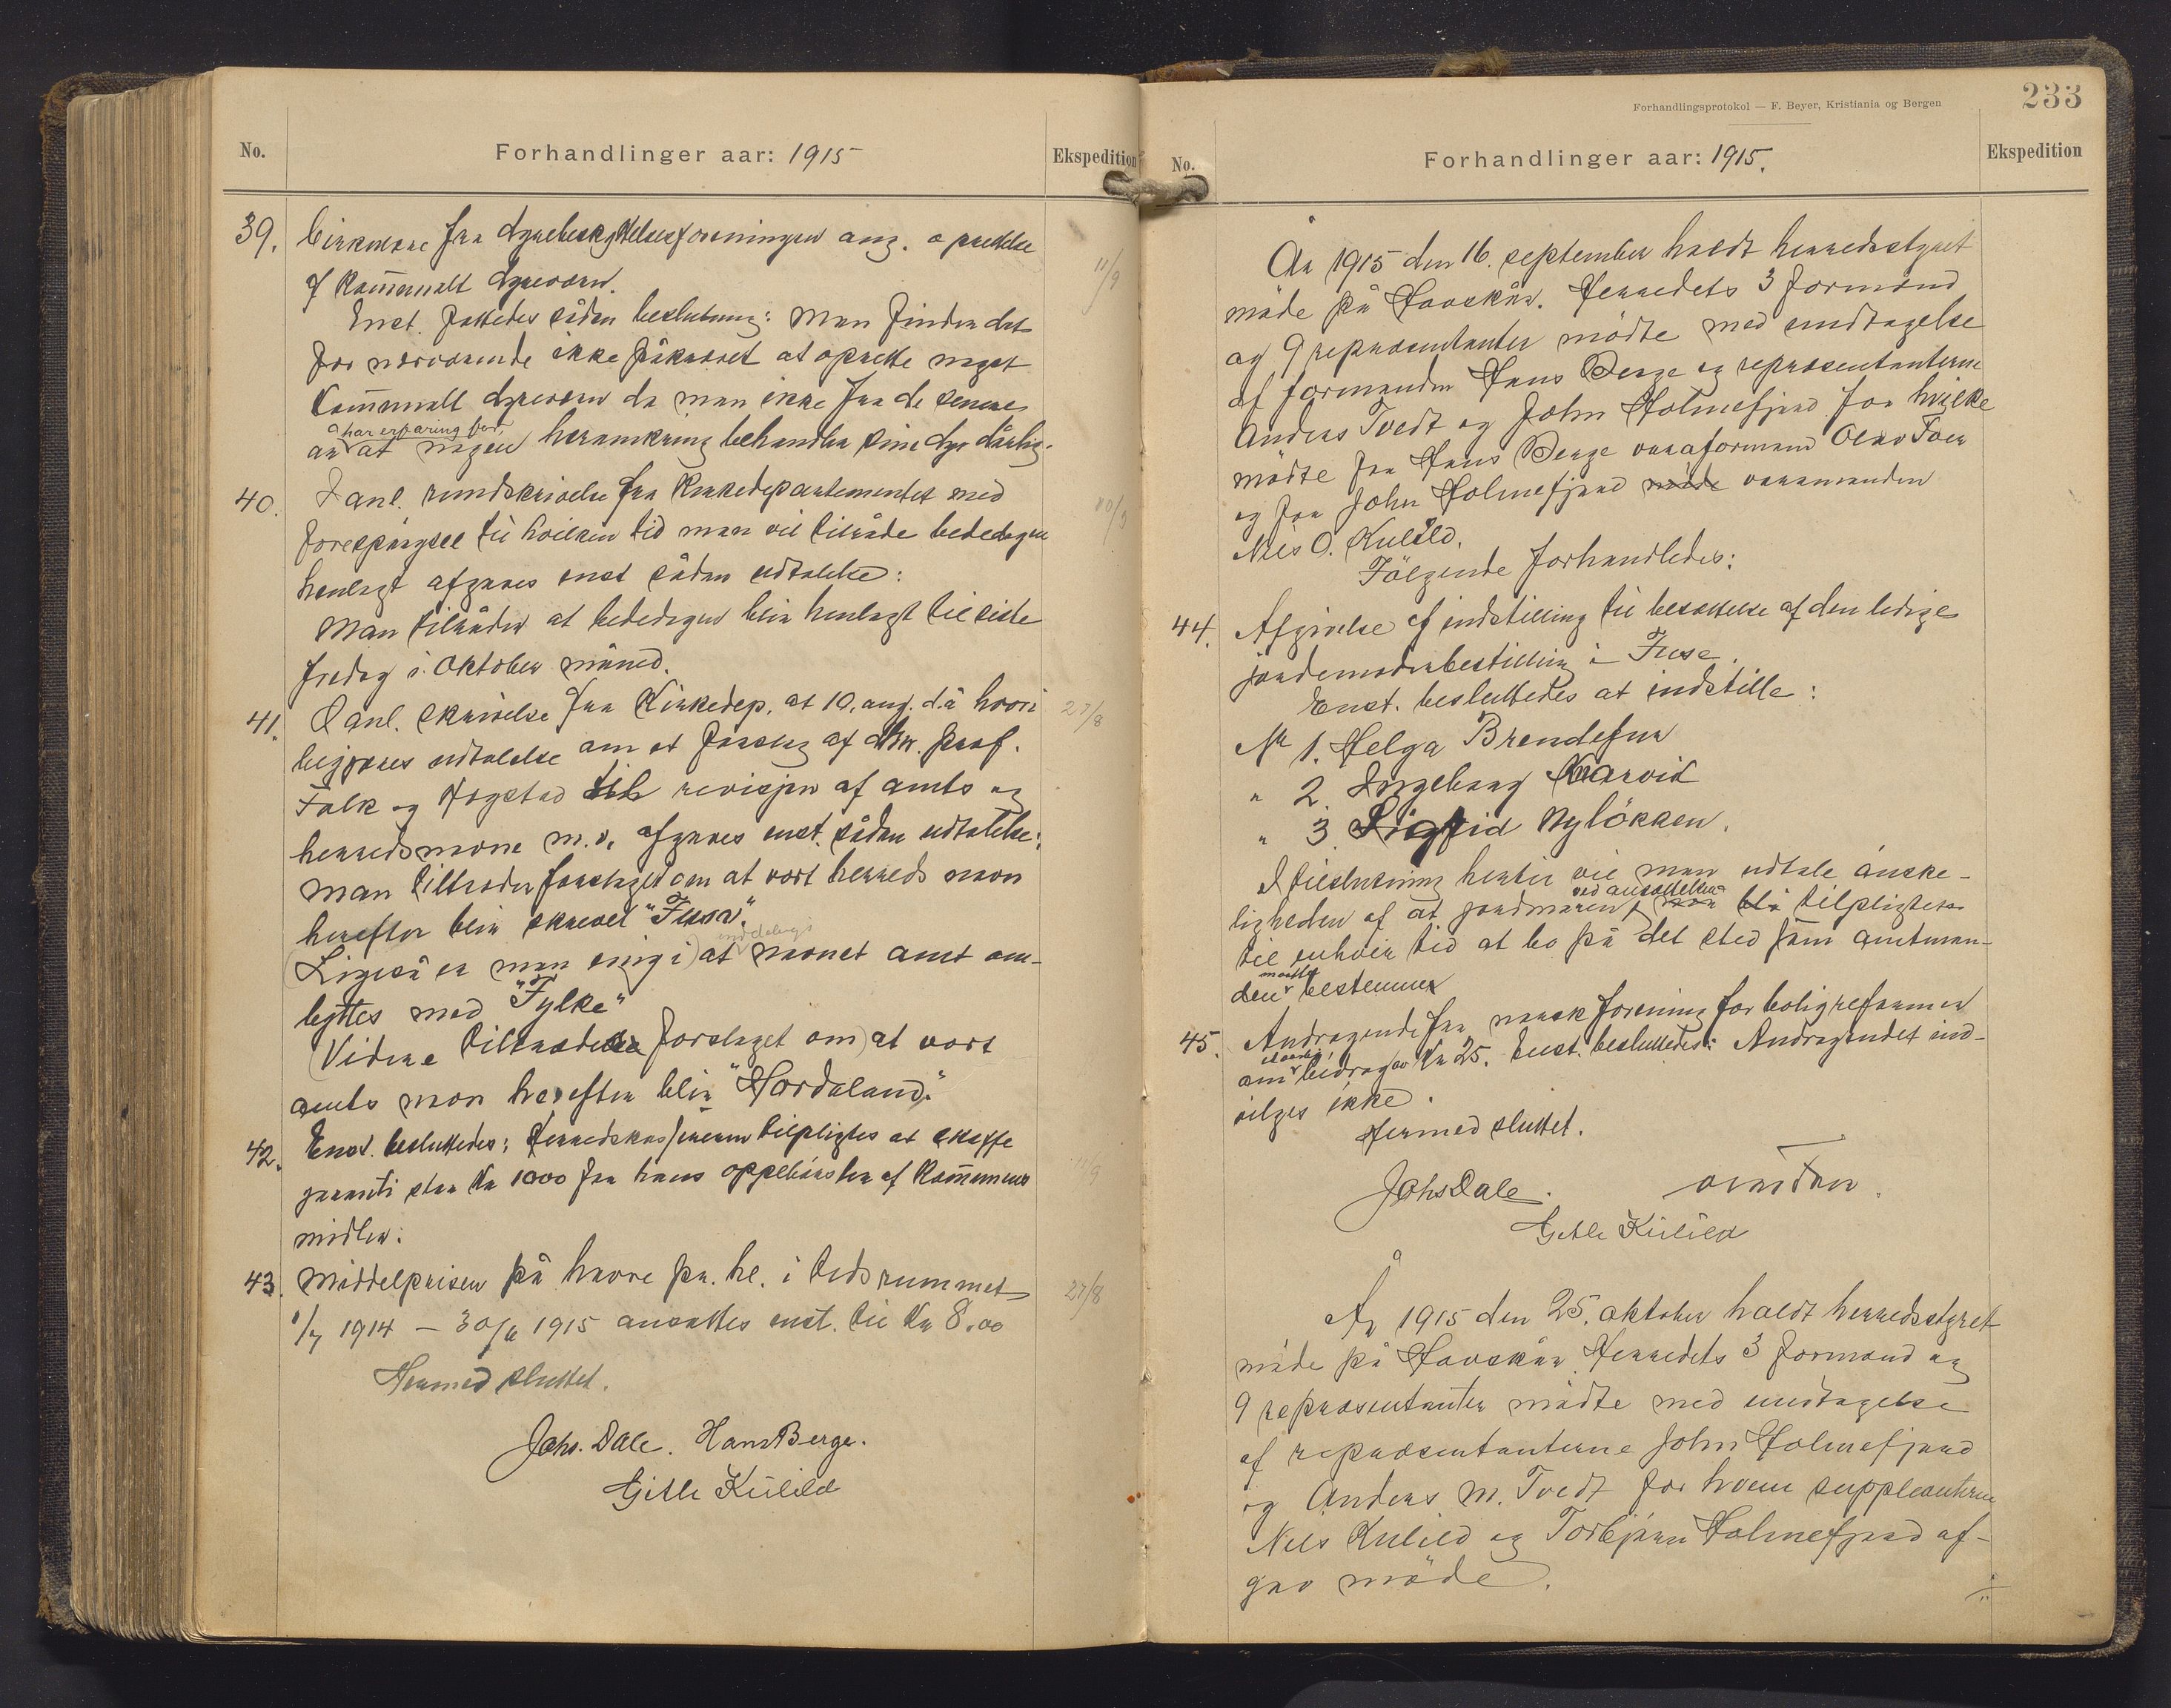 No.
Forhandlinger aar: 1915
Ekspedition
39. Cirkulære fra dyrebeskyttelsesforeningen ang. oprettelse
af kommunalt dyreværn. 11/9
Enst. fattedes sådan beslutning: Man finder det
for nærværende ikke påkrævet at oprette noget
kommunalt dyreværn da man ikke fra de senere
har erfaring for,
år at nogen heromkring behandler sine dyr dårlig.
40. I anl. rundskrivelse fra Kirkedepartementet med 10/9
forespørgsel til hvilken tid man vil tilråde bededagen
henlagt afgaves enst sådan udtalelse:
Man tilråder at bededagen blir henlagt til siste
fredag i oktober måned.
41. I anl. skrivelse fra Kirkedep. at 10. aug. d.å hvori 27/8
begjæres udtalelse om et forslag af d'hrr. prof.
Falk og Hægstad til revisjon af amts og
herredsnavne m.v. afgaves enst. sådan udtalelse:
Man tiltræder forslaget om at vort herreds navn
herefter blir skrevet "Fusa".
inddelings
(Ligeså er man enig i) at navnet amt om-
byttes med "Fylke"
(Videre tiltrædes forslaget om) at vort
amts navn herefter blir "Hordaland".
42. Enst. besluttedes: Herredskassereren tilpligtes at skaffe
garanti stor kr 1000 for hans oppebørsler af kommunens
midler.
43. Middelprisen på havre pr. hl. i tidsrummet 27/8
1/7 1914 – 30/6 1915 ansattes enst. til kr 8.00
Hermed sluttet.
Johs. Dale. Hans Berge.
Gitle Kulild
Forhandlingsprotokol — F. Beyer, Kristiania og Bergen
233
No.
Forhandlinger aar: 1915.
Ekspedition
År 1915 den 16. september holdt herredsstyret
møde på Havskår. Herredets 3 formænd
og 9 repræsentanter mødte med undtagelse
af formanden Hans Berge og repræsentanterne
Anders Tvedt og John Holmefjord for hvilke
mødte for Hans Berge varaformand Olav Tveit
og for John Holmefjord møde varamanden
Nils O. Kulild.
Følgende forhandledes:
44. Afgivelse af indstilling til besættelse af den ledige
jordemoderbestilling i Fuse.
Enst. besluttedes at indstille:
Nr 1. Helga Brendefur
" 2. Ingeborg Kvarvid
" 3. Sigfrid Nyløkken.
I tilslutning hertil vil man udtale ønske-
ved ansættelsen
ligheden af at jordmoren blir tilpligtet
til enhver tid at bo på det sted som amtman-
måtte
den bestemmer
45. Andragende fra norsk forening for boligreformer
om bidrag av kr 25. Enst. besluttedes: Andragendet ind-
vilges ikke.
Hermed sluttet.
Johs Dale.
Gitle Kulild
År 1915 den 25. oktober holdt herredsstyret
møde på Havskår. Herredets 3 formænd og
9 repræsentanter mødte med undtagelse
af repræsentanterne John Holmefjord
og Anders M. Tvedt for hvem suppleanterne
Nils Kulild og Torbjørn Holmefjord af-
gav møde.